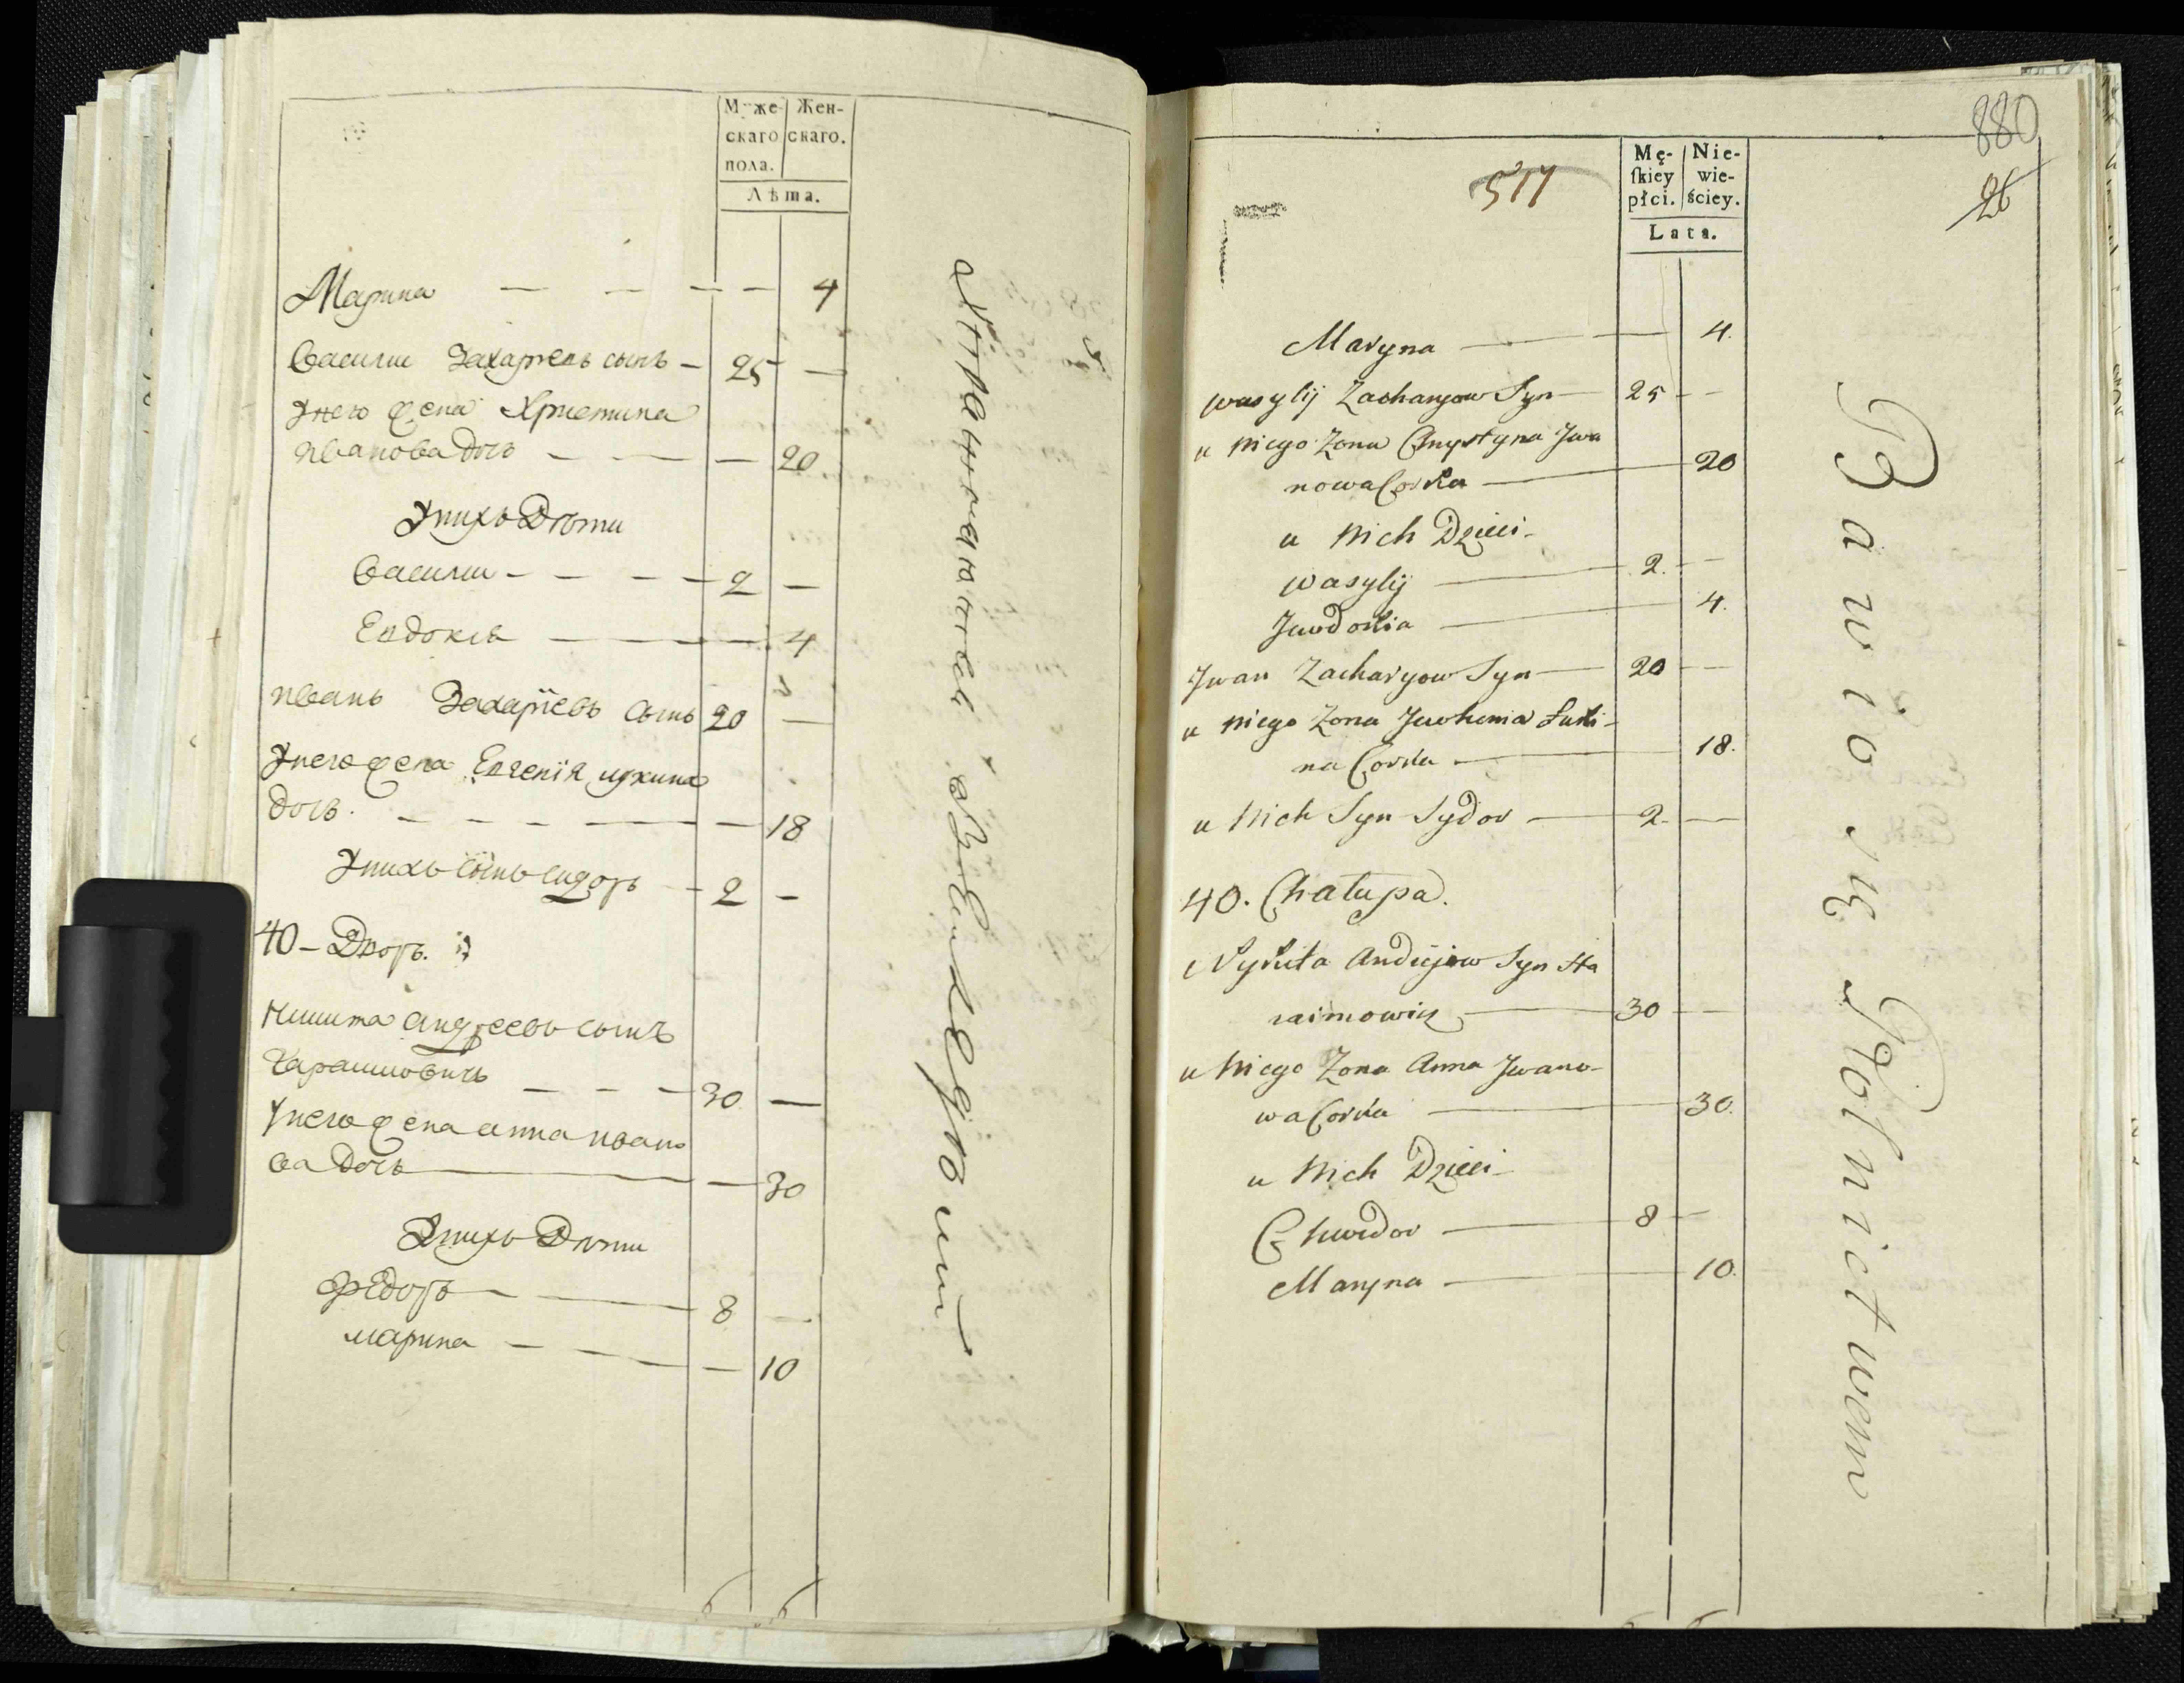 Муже- Жен-
скаго скаго.
пола.
Лѣта.
Марина — — — — 4
Василии Захариевъ сынъ — 25 —
Унего жена Христина
Ивановадочь — — — 20
Унихъ Дѣти
Василии — — — — 2 —
Евдокія — — — — 4
иванъ Захаріевъ сынъ 20 —
Унего жена Евгенія лукина
дочь. — — — — — 18
Унихъ сынъ сидоръ — 2 —
40 — Дворъ.
Никита андреевъ сынъ
Харашмовичъ — — — 30 —
Унего жена анна ивано
ва дочь — — 30
Унихъ Дѣти
Федоръ — — 8 —
марина — — — — 10
880
26
517
Mę- Nie-
skiey wie-
płci. ściey.
Lata.
Maryna — — 4.
wasylij Zacharyow Syn — 25 — —
u niego Zona Chrystyna Jwa
nowa Corka — 20
u Nich Dzieci —
wasylij — 2. —
Jewdokia — 4.
Jwan Zacharyow Syn — 20 — —
u niego Zona Jewhenia Łuki-
na Corka — 18.
u Nich Syn Sydor — 2. —
40. Chałupa.
Nykita Andrijow Syn Ha
raimowicz — 30 — —
u Niego Zona Anna Jwano-
wa Corka — 30.
u Nich Dzieci —
Chwedor — 8 —
Maryna — 10.
Bawio się Rolnictwem